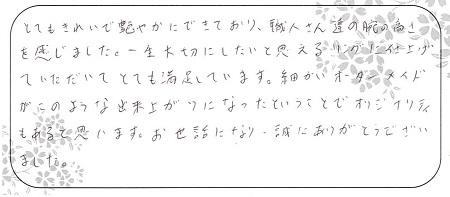 とてもきれいで艶やかにできており、職人さん達の腕の高さ
を感じました。一生大切にしたいと思えるリングに仕上げ
ていただいてとても満足しています。細かいオーダーメイド
がこのような出来上がりになったということでオリジナリティ
もあると思います。お世話になり、誠にありがとうござい
ました。